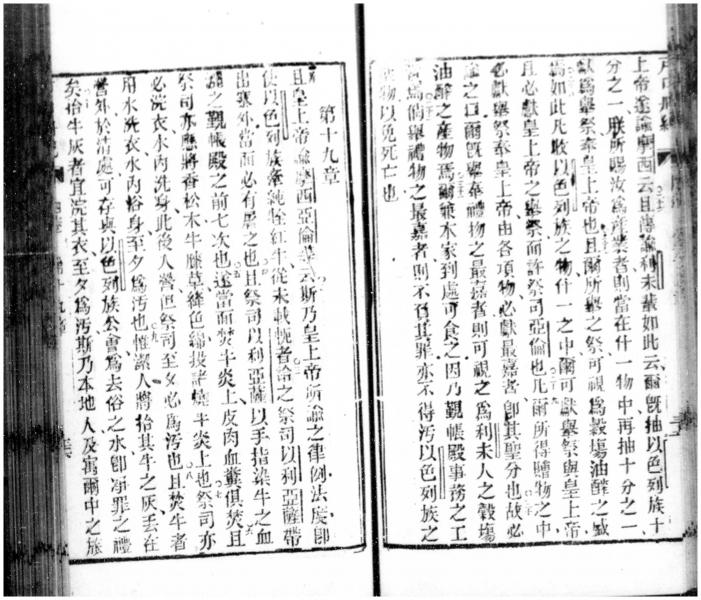 上帝遂諭摩西云且傳諭利未輩如此云爾既抽以色列族十
分之一朕所賜汝為產業者則當在什一物中再抽十分之一
獻為舉祭奉皇上帝也且爾所舉之祭可視為穀塲油醡之
如此凡收以色列族之物什一之中爾可獻舉祭與皇上帝
且必獻皇上帝之舉祭而許祭司亞倫也凡爾所得贈物之中
必獻舉祭奉皇上帝由各項物必獻最嘉者卽其聖分也故必
之曰爾既舉奉禮物之最嘉者則可視之為利未人之穀塲
油醡之產物焉爾眾家到處可食之因乃覲帳殿事務之工
為爾舉禮物之最嘉者則不召其罪亦不得汚以色列族之
物以免死亡也
第十九章
且皇上帝諭摩西亞倫云斯乃皇上帝所諭之律例法度卽
使以色列族牽純紅牛從未載軛者給之祭司以利亞薩帶
出寨外當面必有屠之也且祭司以利亞薩以手指染牛之血
之覲帳殿之前七次也遂當面焚牛炎上皮肉血糞俱焚且
祭司亦應將香松木牛膝草絳色綿投諸燒牛炎上也祭司亦
必浣衣水內洗身此後入營但祭司至夕必為汚也且焚牛者
用水洗衣水內浴身至夕為汚也惟潔人將拾其牛之灰丟在
營外於清處可存與以色列族公會為去俗之水卽凈罪之禮
矣拾牛灰者宜浣其衣至夕為汚斯乃本地人及寓爾中之旅